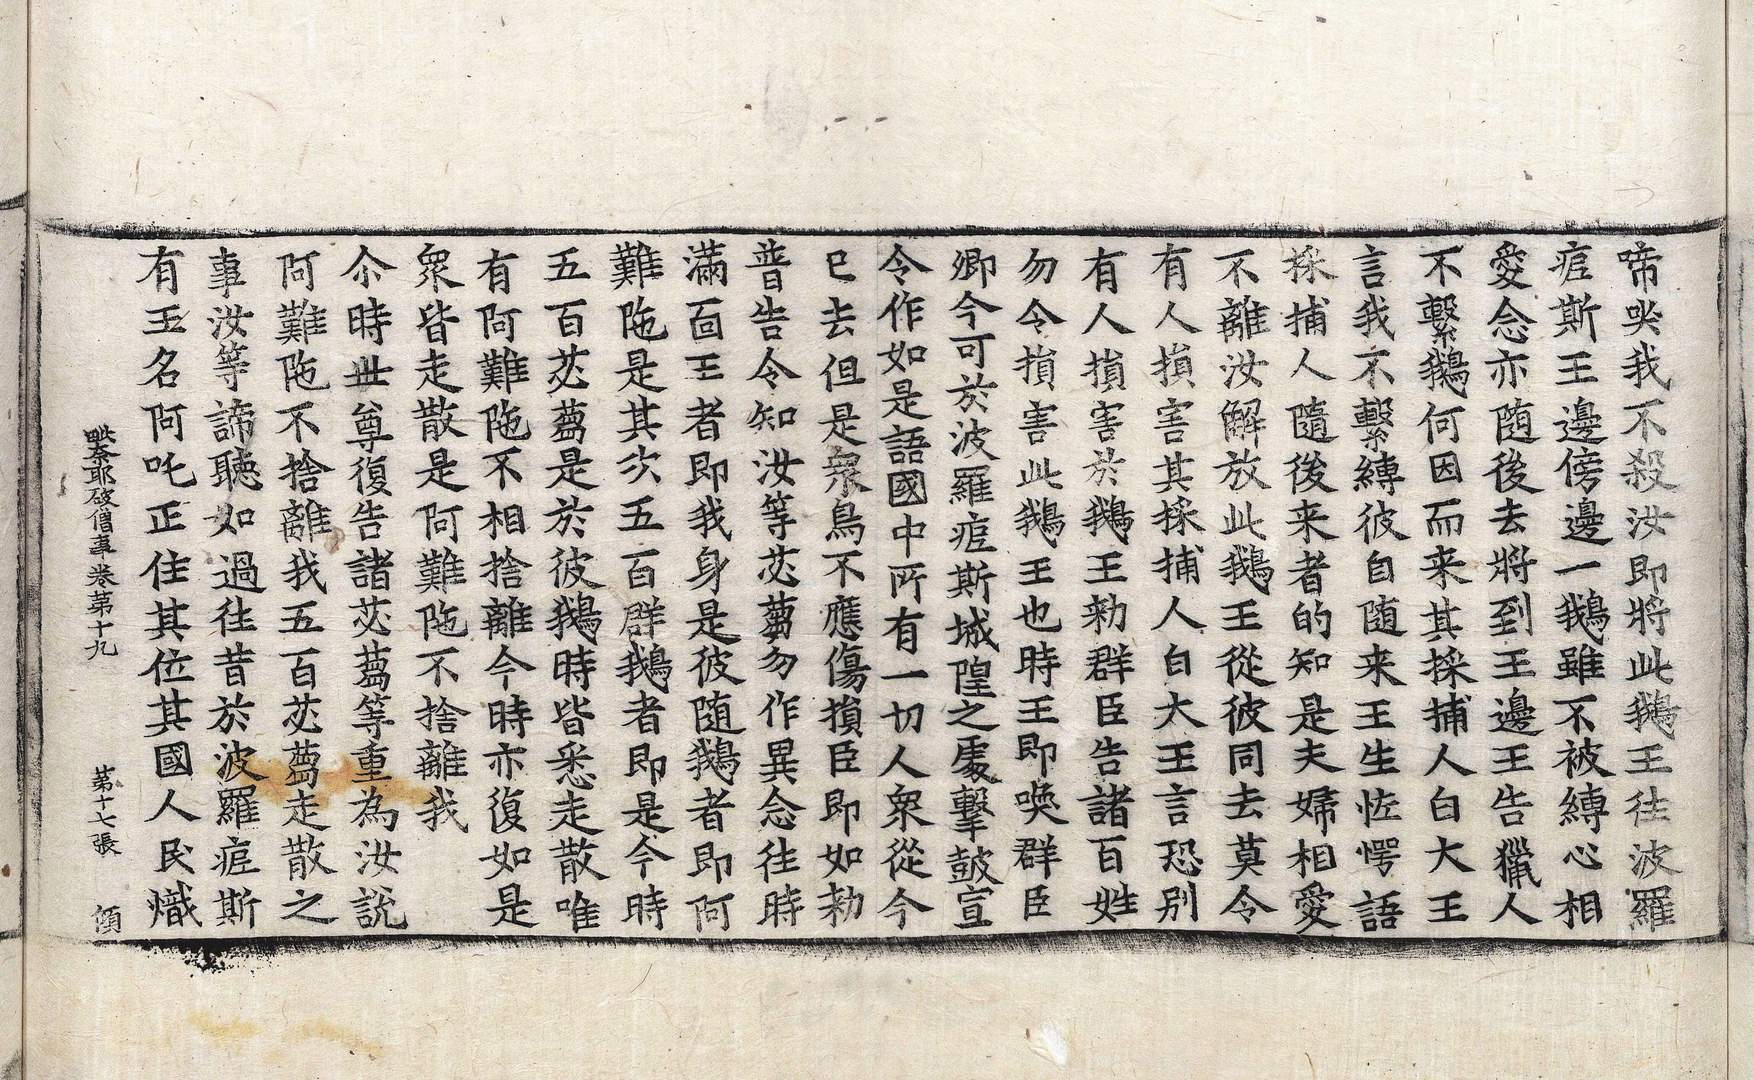 啼哭我不殺汝即將此鵝王往波羅
痆斯王邊傍邊一鵝雖不被縛心相
愛念亦随後去將到王邊王告獵人
不繫鵝何因而来其採捕人白大王
言我不繫縛彼自随来王生恠愕語
採捕人隨後来者的知是夫婦相愛
不離汝解放此鵝王從彼同去莫令
有人損害其採捕人白大王言恐別
有人損害於鵝王勑群臣告諸百姓
勿令損害此鵝王也時王即喚群臣
卿今可於波羅痆斯城隍之處擊鼓宣
令作如是語國中所有一切人衆從今
已去但是衆鳥不應傷損臣即如勑
普告令知汝等苾蒭勿作異念往時
滿面王者即我身是彼随鵝者即阿
難陁是其次五百群鵝者即是今時
五百苾蒭是於彼鵝時皆悉走散唯
有阿難陁不相捨離今時亦復如是
衆皆走散是阿難陁不捨離我
尒時世尊復告諸苾蒭等重為汝說
阿難陁不捨離我五百苾蒭走散之
事汝等諦聽如過往昔於波羅痆斯
有王名阿吒正住其位其國人民熾
毗奈耶破僧事卷第十九 第十七張 傾